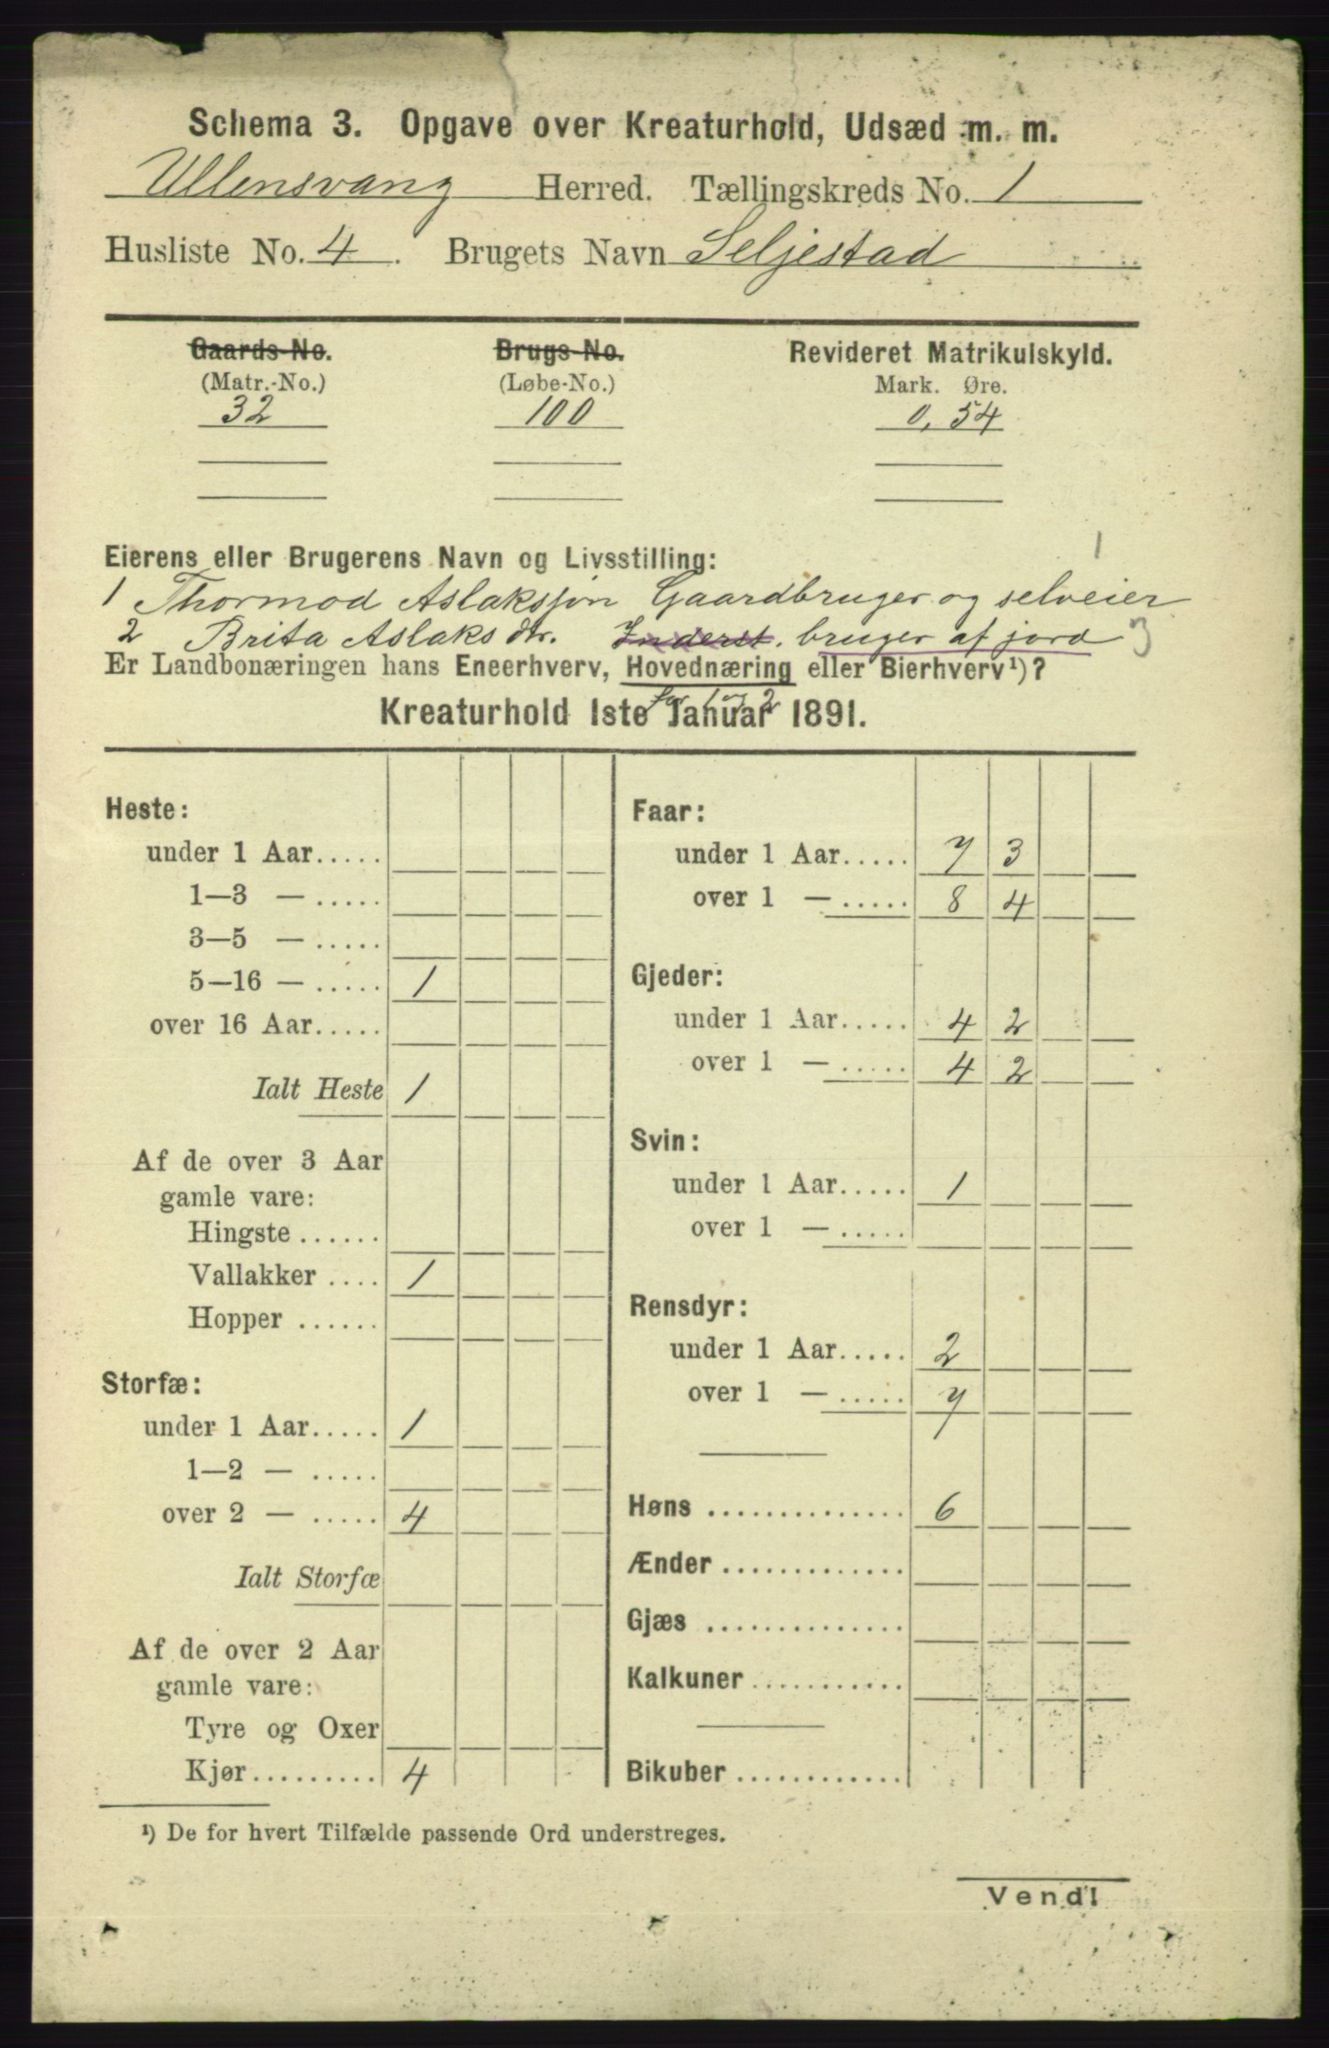 Schema 3. Opgave over Kreaturhold, Udsæd m. m.
Ullensvang Herred. Tællingskreds No. 1
Husliste No. 4. Brugets Navn Seljestad
Gaards-No. Brugs-No. Revideret Matrikulskyld.
(Matr.-No.) (Løbe-No.) Mark. Øre.
32 100 0,54
Eierens eller Brugerens Navn og Livsstilling: 1
1 Thormod Aslaksson Gaardbruger og selveier
2 Brita Aslaks dtr. Inderst. bruger af jord 3
Er Landbonæringen hans Eneerhverv, Hovednæring eller Bierhverv¹)?
for 1 og 2
Kreaturhold 1ste Januar 1891.
Heste:
under 1 Aar.....
1—3 — .....
3—5 — .....
5—16 — ..... 1
over 16 Aar.....
Ialt Heste 1
Af de over 3 Aar
gamle vare:
Hingste ......
Vallakker .... 1
Hopper ......
Storfæ:
under 1 Aar..... 1
1—2 — .....
over 2 — ..... 4
Ialt Storfæ
Af de over 2 Aar
gamle vare:
Tyre og Oxer
Kjør......... 4
Faar:
under 1 Aar..... 7 3
over 1 — ..... 8 4
Gjeder:
under 1 Aar..... 4 2
over 1 — ..... 4 2
Svin:
under 1 Aar..... 1
over 1 — .....
Rensdyr:
under 1 Aar..... 2
over 1 — ..... 7
Høns .............. 6
Ænder .............
Gjæs ..............
Kalkuner ...........
Bikuber .............
¹) De for hvert Tilfælde passende Ord understreges.
Vend!